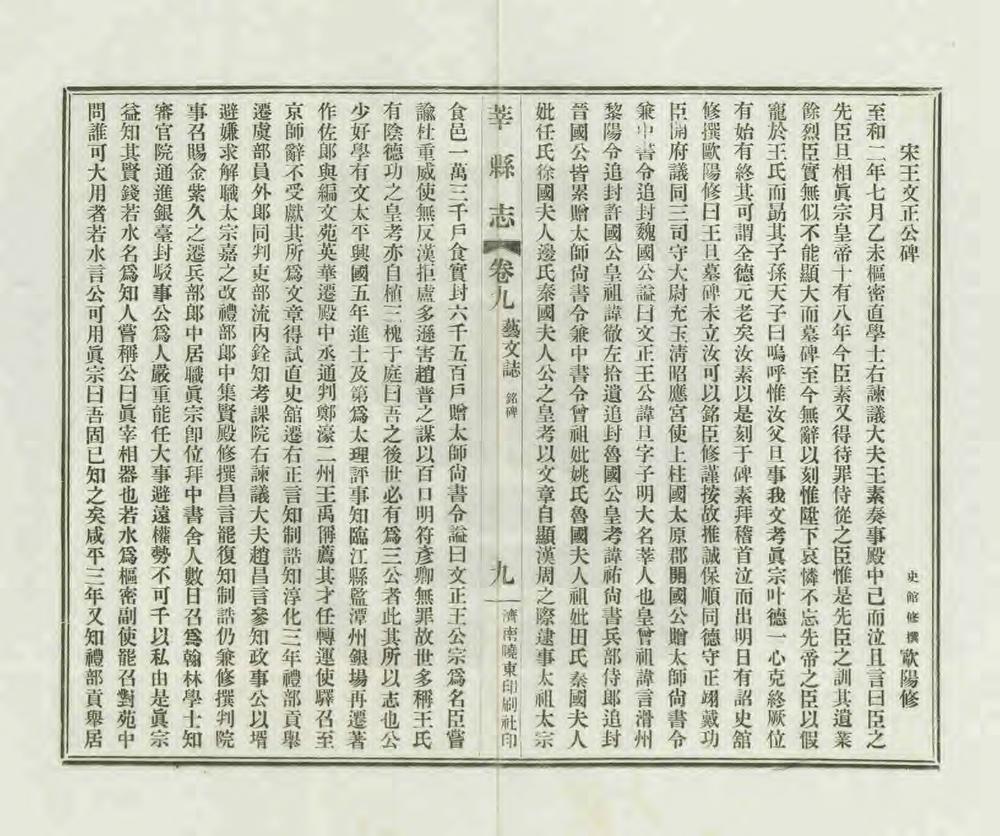 宋王文正公碑
史館修撰歐陽修
至和二年七月乙未樞密直學士右諫議大夫王素奏事殿中已而泣且言曰臣之
先臣旦相眞宗皇帝十有八年今臣素又得待罪侍從之臣惟是先臣之訓其遺業
餘烈臣實無似不能顯大而墓碑至今無辭以刻惟陞下哀憐不忘先帝之臣以假
寵於王氏而勗其子孫天子曰嗚呼惟汝父旦事我文考眞宗叶德一心克終厥位
有始有終其可謂全德元老矣汝素以是刻于碑素拜稽首泣而出明日有詔史舘
修撰歐陽修曰王旦墓碑未立汝可以銘臣修謹按故推誠保順同德守正翊戴功
臣開府議同三司守大尉充玉淸昭應宮使上柱國太原郡開國公贈太師尙書令
兼中書令追封魏國公謚曰文正王公諱旦字子明大名莘人也皇曾祖諱言滑州
黎陽令追封許國公皇祖諱徹左拾遺追封魯國公皇考諱祐尙書兵部侍郎追封
晉國公皆累贈太師尙書令兼中書令曾祖妣姚氏魯國夫人祖妣田氏秦國夫人
妣任氏徐國夫人邊氏秦國夫人公之皇考以文章自顯漢周之際逮事太祖太宗
莘縣志 卷九 藝文誌 銘碑 九 濟南曉東印刷社印
食邑一萬三千戶食實封六千五百戶贈太師尙書令謚曰文正王公宗爲名臣嘗
諭杜重威使無反漢拒盧多遜害趙普之謀以百口明符彥卿無罪故世多稱王氏
有陰德功之皇考亦自植三槐于庭曰吾之後世必有爲三公者此其所以志也公
少好學有文太平興國五年進士及第爲太理評事知臨江縣監潭州銀場再遷著
作佐郎與編文苑英華遷殿中丞通判鄭濠二州王禹偁薦其才任轉運使驛召至
京師辭不受獻其所爲文章得試直史舘遷右正言知制誥知淳化三年禮部貢擧
遷虞部員外郎同判吏部流內銓知考課院右諫議大夫趙昌言參知政事公以壻
避嫌求解職太宗嘉之改禮部郎中集賢殿修撰昌言罷復知制誥仍兼修撰判院
事召賜金紫久之遷兵部郎中居職眞宗卽位拜中書舍人數日召爲翰林學士知
審官院通進銀臺封駁事公爲人嚴重能任大事避遠權勢不可干以私由是眞宗
益知其賢錢若水名爲知人嘗稱公曰眞宰相器也若水爲樞密副使罷召對苑中
問誰可大用者若水言公可用眞宗曰吾固已知之矣咸平三年又知禮部貢舉居